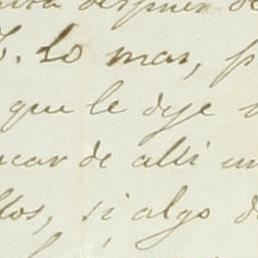 despues de
Lo mas, p
que le deje
car de alli un
llos, si algo d